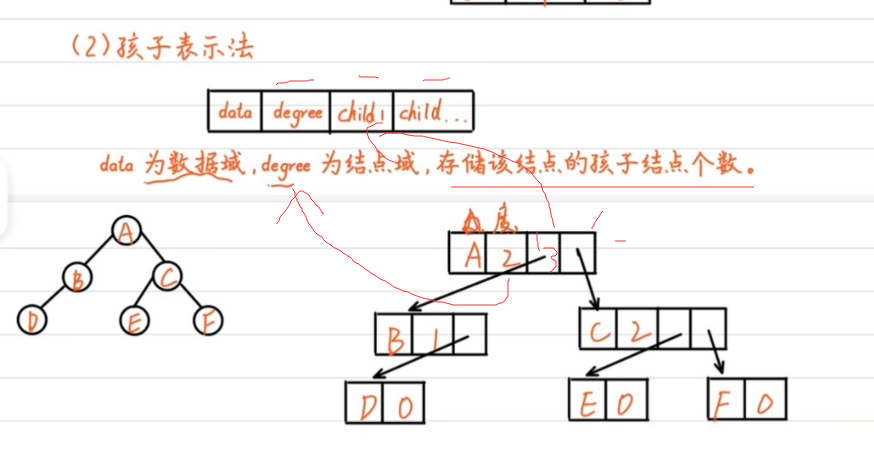 (2)孩子表示法
data degree child1 child...
data 为数据域,degree 为结点域,存储该结点的孩子结点个数。
度
A
A 2
B C
B 1
C 2
D E F
D 0
E 0
F 0